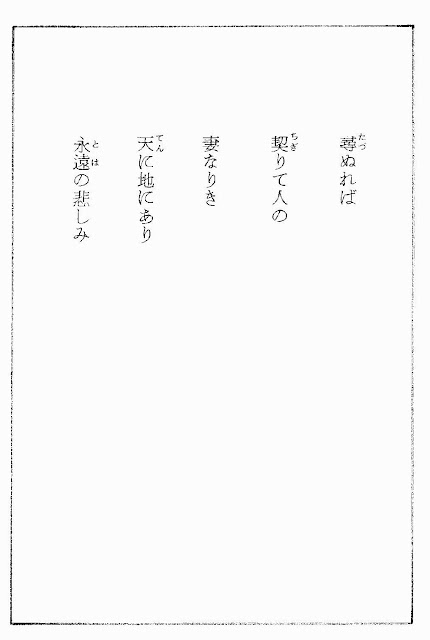 尋ぬれば
契りて人の
妻なりき
天に地にあり
永遠の悲しみ